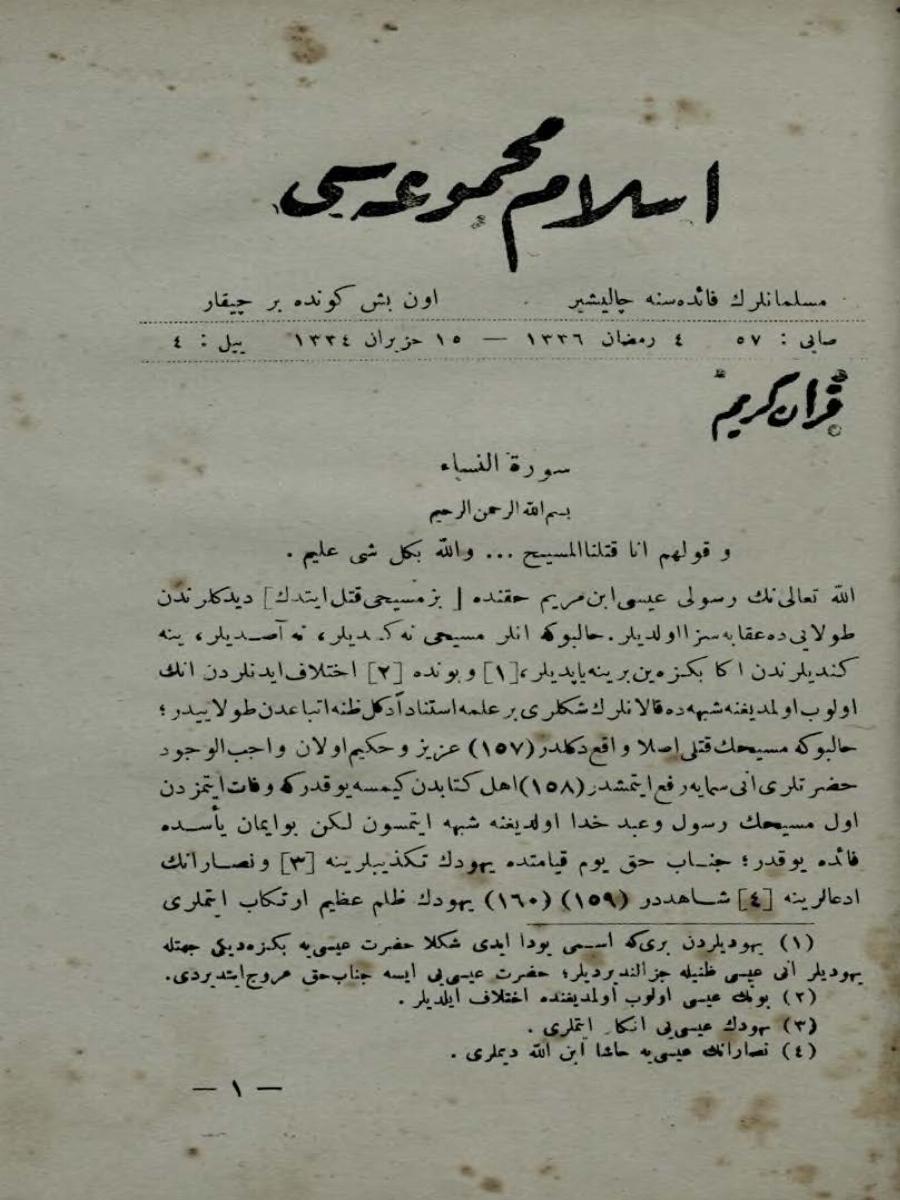 اسلام مجموعه‌سی
مسلمانلرك فائده‌سنه چالیشیر اون بش كونده بر چیقار
صایی : ٥٧ ٤ رمضان ١٣٣٦ — ١٥ حزیران ١٣٣٤ ییل : ٤
قرآن كریم
سورة النساء
بسم الله الرحمن الرحیم
و قولهم انا قتلنا المسیح ... والله بكل شی علیم .
الله تعالی‌نك رسولی عیسی ابن مریم حقنده [ بز مسیحی قتل ایتدك ] دیدكلرندن
طولایی‌ده عقابه سزا اولدیلر . حالبوكه انلر مسیحی نه كسدیلر ، نه آصدیلر ، ینه
كندیلرندن اكا بكزه‌ین برینه یاپدیلر ، [١] و بونده [٢] اختلاف ایدنلردن انك
اولوب اولمدیغنه شبهه‌ده قالانلرك شكلری بر علمه استناداً دكل ظنه اتباعدن طولاییدر ؛
حالبوكه مسیحك قتلی اصلا واقع دكلدر (١٥٧) عزیز و حكیم اولان واجب الوجود
حضرتلری انی سمایه رفع ایتمشدر (١٥٨) اهل كتابدن كیمسه یوقدركه وفات ایتمزدن
اول مسیحك رسول وعبد خدا اولدیغنه شبهه ایتمسون لكن بو ایمان یأسده
فائده یوقدر ؛ جناب حق یوم قیامتده یهودك تكذیبلرینه [٣] و نصارانك
ادعالرینه [٤] شاهددر (١٥٩) (١٦٠) یهودك ظلم عظیم ارتكاب ایتملری
(١) یهودیلردن بری‌كه اسمی یودا ایدی شكلا حضرت عیسی‌یه بكزه‌دیكی جهتله
یهودیلر انی عیسی ظنیله جزالندیردیلر ؛ حضرت عیسی‌یی ایسه جناب‌حق عروج ایتدیردی .
(٢) بونك عیسی اولوب اولمدیغنده اختلاف ایلدیلر .
(٣) یهودك عیسی‌یی انكار ایتملری .
(٤) نصارانك عیسی‌یه حاشا ابن الله دیملری .
— ١ —